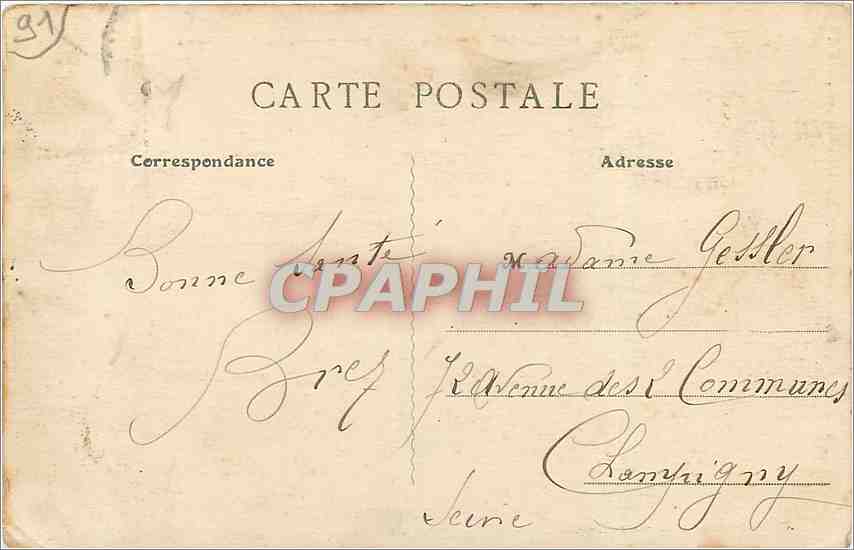 91
CARTE POSTALE
Correspondance
Adresse
Bonne Santé
Brez
Madame Gessler
72 Avenue des 2 Communes
Champigny
Seine
CPAPHIL